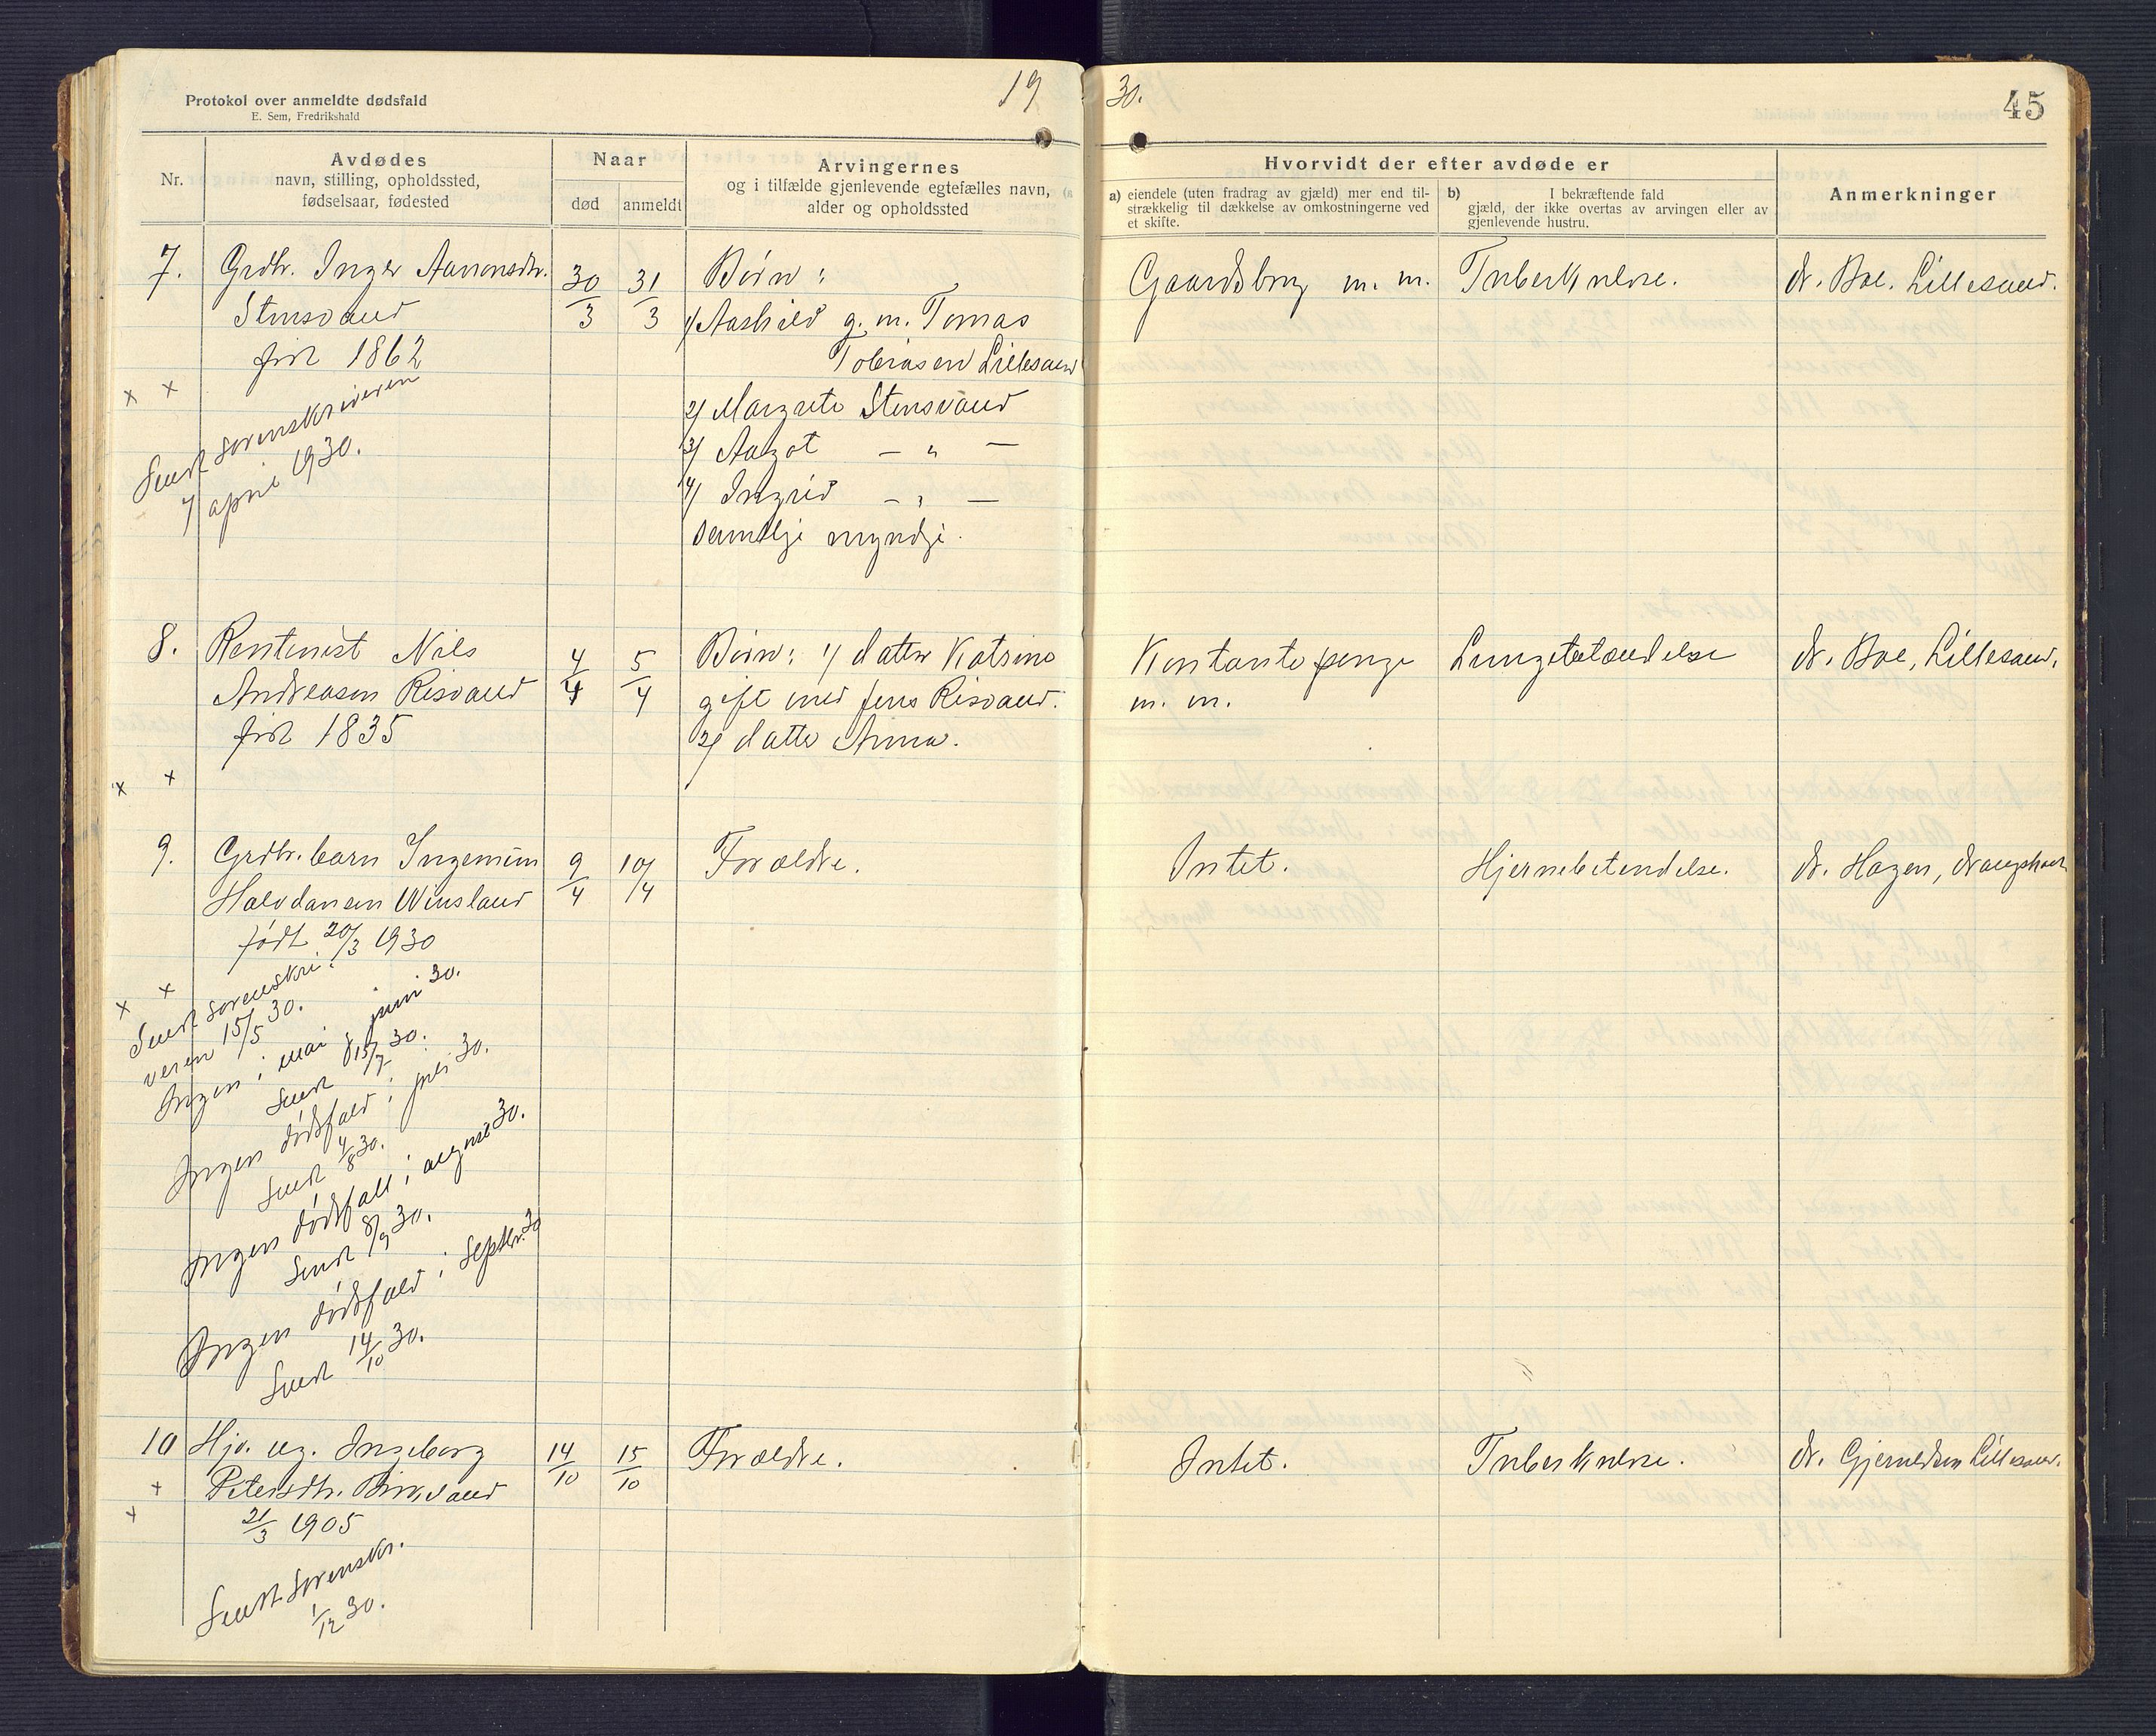 Protokol over anmeldte dødsfald
E. Sem, Fredrikshald
19
30.
45
Nr.
Avdødes
navn, stilling, opholdssted,
fødselsaar, fødested
Naar
død
anmeldt
Arvingernes
og i tilfælde gjenlevende egtefælles navn,
alder og opholdssted
Hvorvidt der efter avdøde er
a) eiendele (uten fradrag av gjæld) mer end til-
strækkelig til dækkelse av omkostningerne ved
et skifte.
b) I bekræftende fald
gjæld, der ikke overtas av arvingen eller av
gjenlevende hustru.
Anmerkninger
7.
Grdbr. Inger Aanonsdtr.
Stensvand
født 1862
x x
Sendt sorenskriveren
7 april 1930.
30/3
31/3
Børn:
1/ Aashild g. m. Tomas
Tobiasen Lillesand
2/ Margrete Stensvand
3/ Aagot — " —
4/ Ingrid — " —
samtlige myndige.
Gaardsbrug m. m.
Tuberkulose.
dr. Boe. Lillesand.
8.
Rentenist Nils
Andreasen Risvand
født 1835
x x
4/4
5/4
Børn: 1/ datter Katrine
gift med Jens Risvand.
2/ datter Anna.
Kontante penge
m. m.
Lungebetændelse
dr. Boe, Lillesand.
9.
Grdbr. barn Ingemun
Halvdansen Winsland
født 20/3 1930
x x
Sendt sorenskri-
veren 15/5 30.
Ingen i mai & juni 30.
Sendt 15/7 30.
Ingen dødsfald i juli 30.
Sendt 4/8 30.
Ingen dødsfall i august 30.
Sendt 8/9 30.
Ingen dødsfald i Septbr. 30
Sendt 14/10 30.
9/4
10/4
Forældre.
Intet.
Hjernebetendelse.
dr. Hagen,
10
Hjv. ug. Ingeborg
Petersdtr. Birkeland
21/3 1905
x
x
Sendt Sorenskr.
1/12 30.
14/10
15/10
Forældre.
Intet.
Tuberkulose.
dr. Gjeruldsen Lillesand.